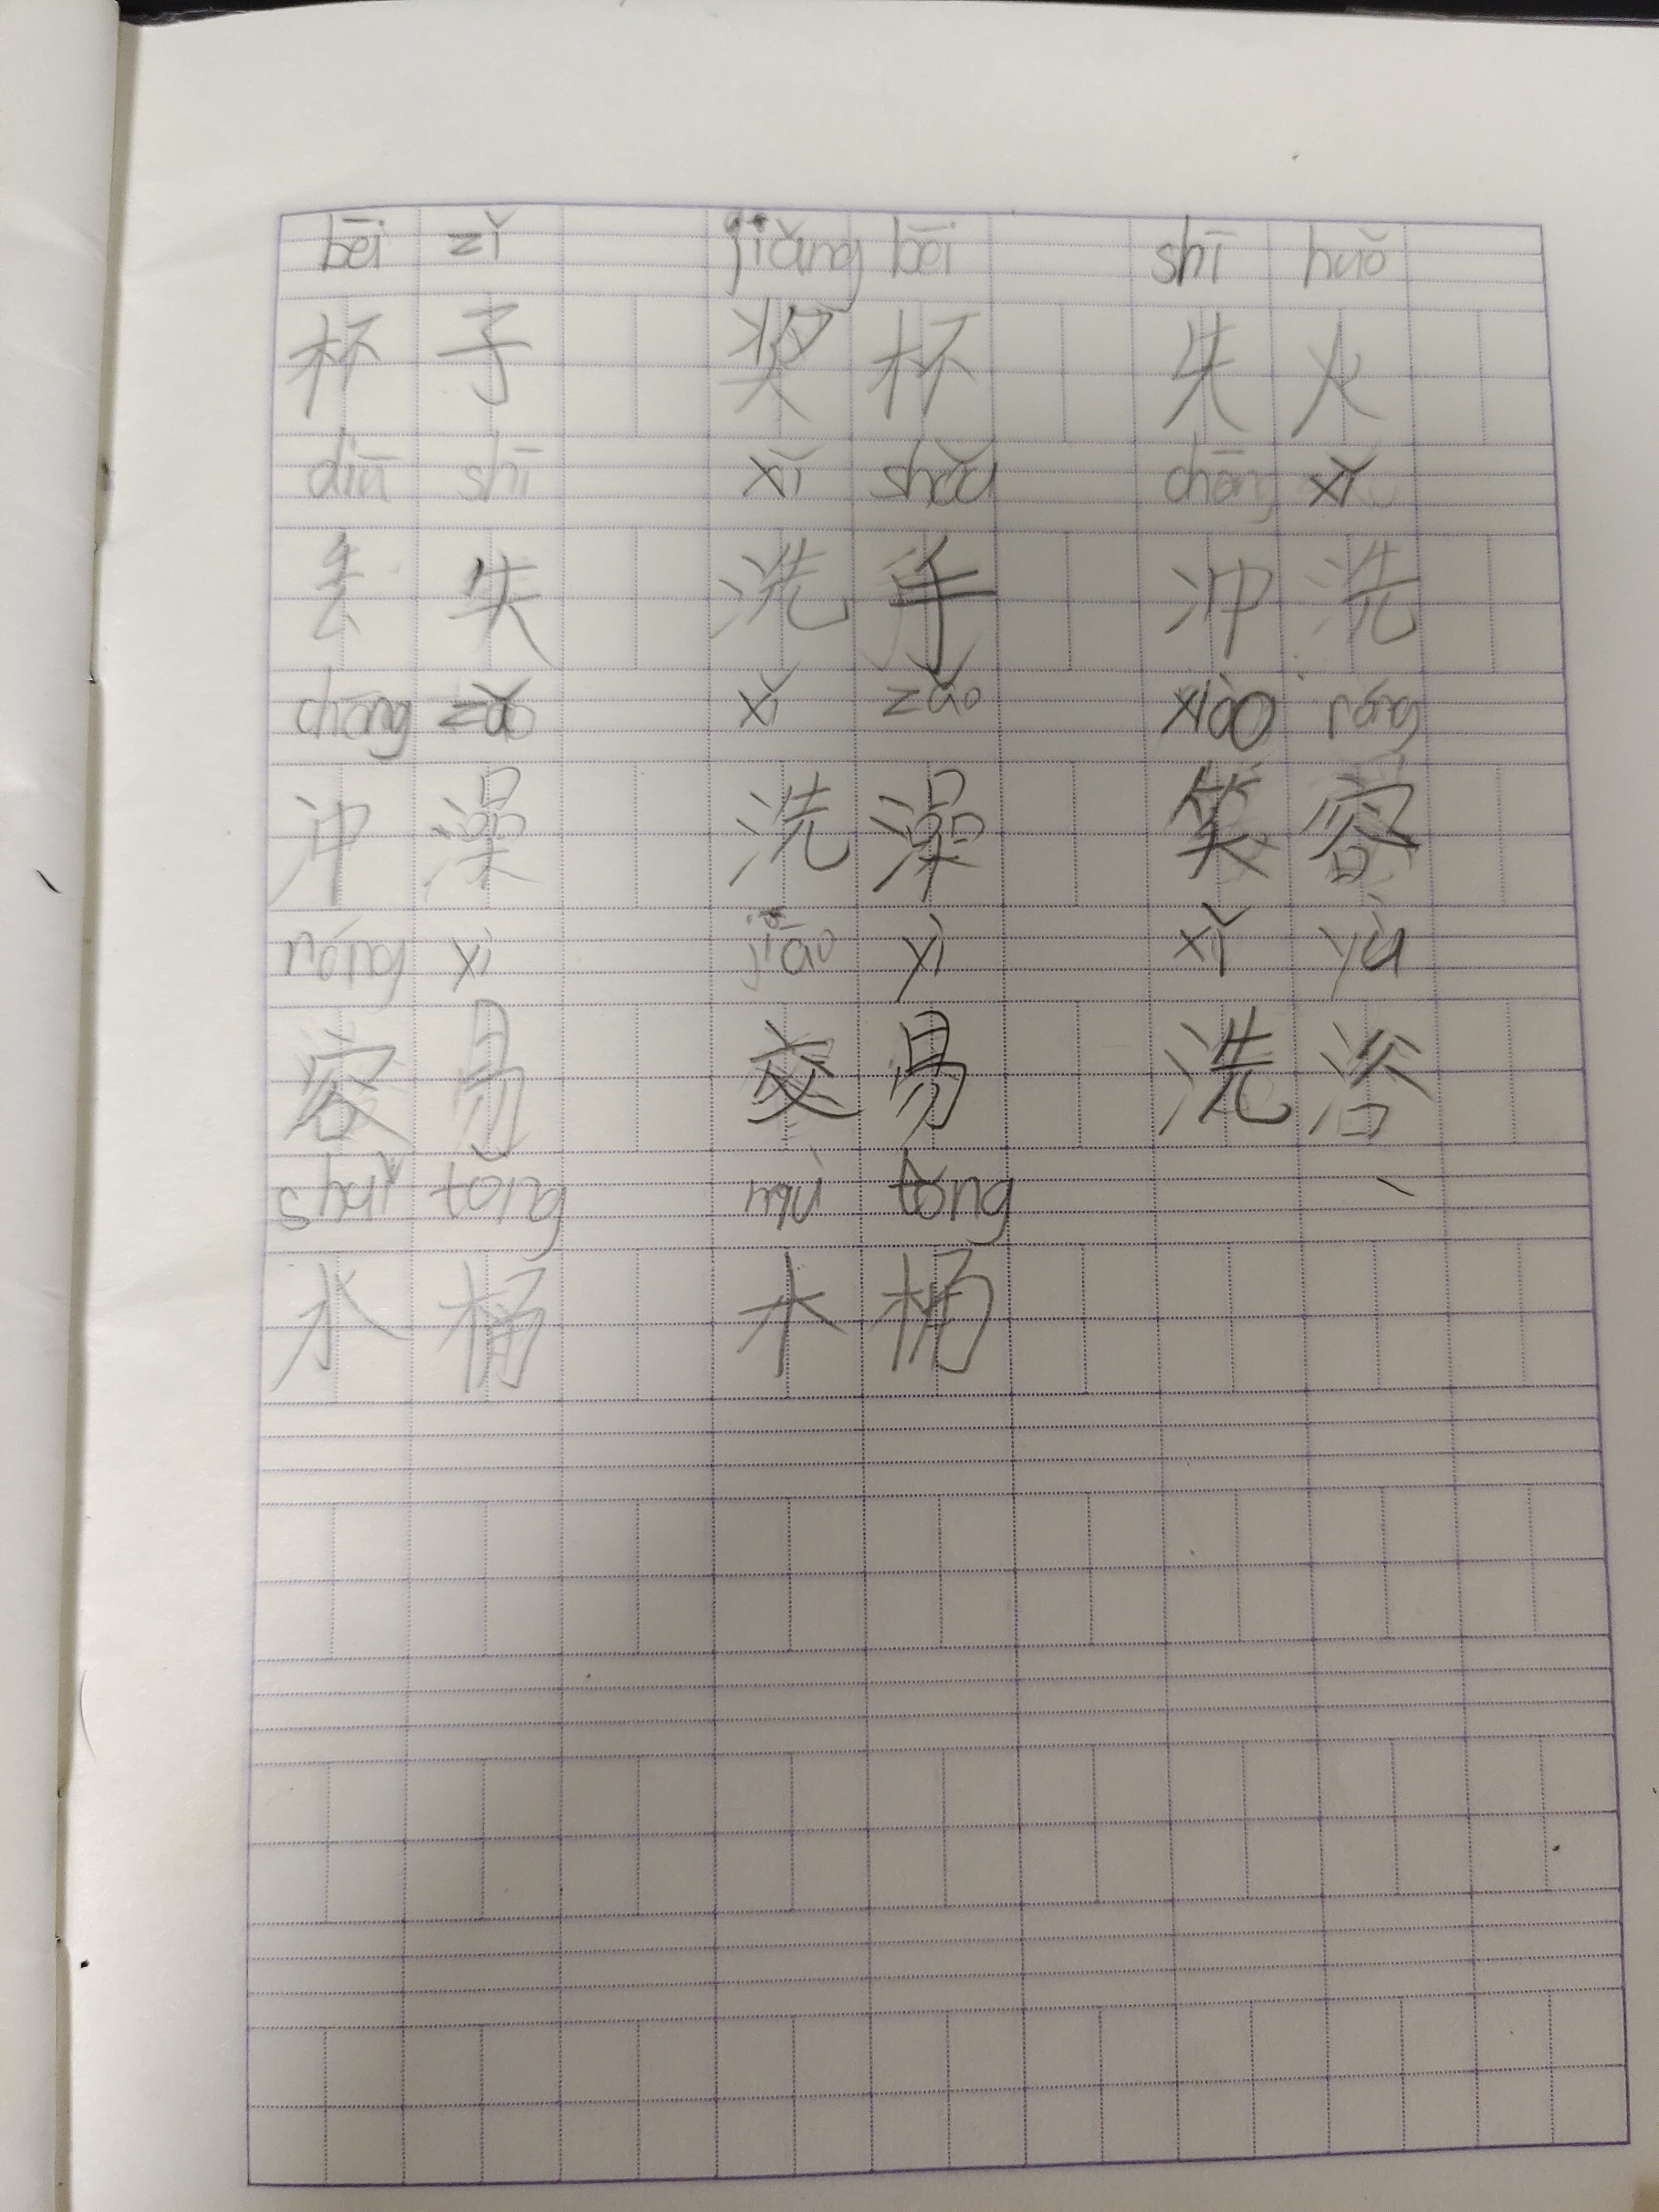 bēi zǐ jiǎng bēi shī huǒ
杯子 奖杯 失火
diū shī xǐ shǒu chōng xǐ
丢失 洗手 冲洗
chōng zǎo xǐ zǎo xiào róng
冲澡 洗澡 笑容
róng yì jiāo yì xǐ yù
容易 交易 洗浴
shuǐ tǒng mù tǒng
水桶 木桶